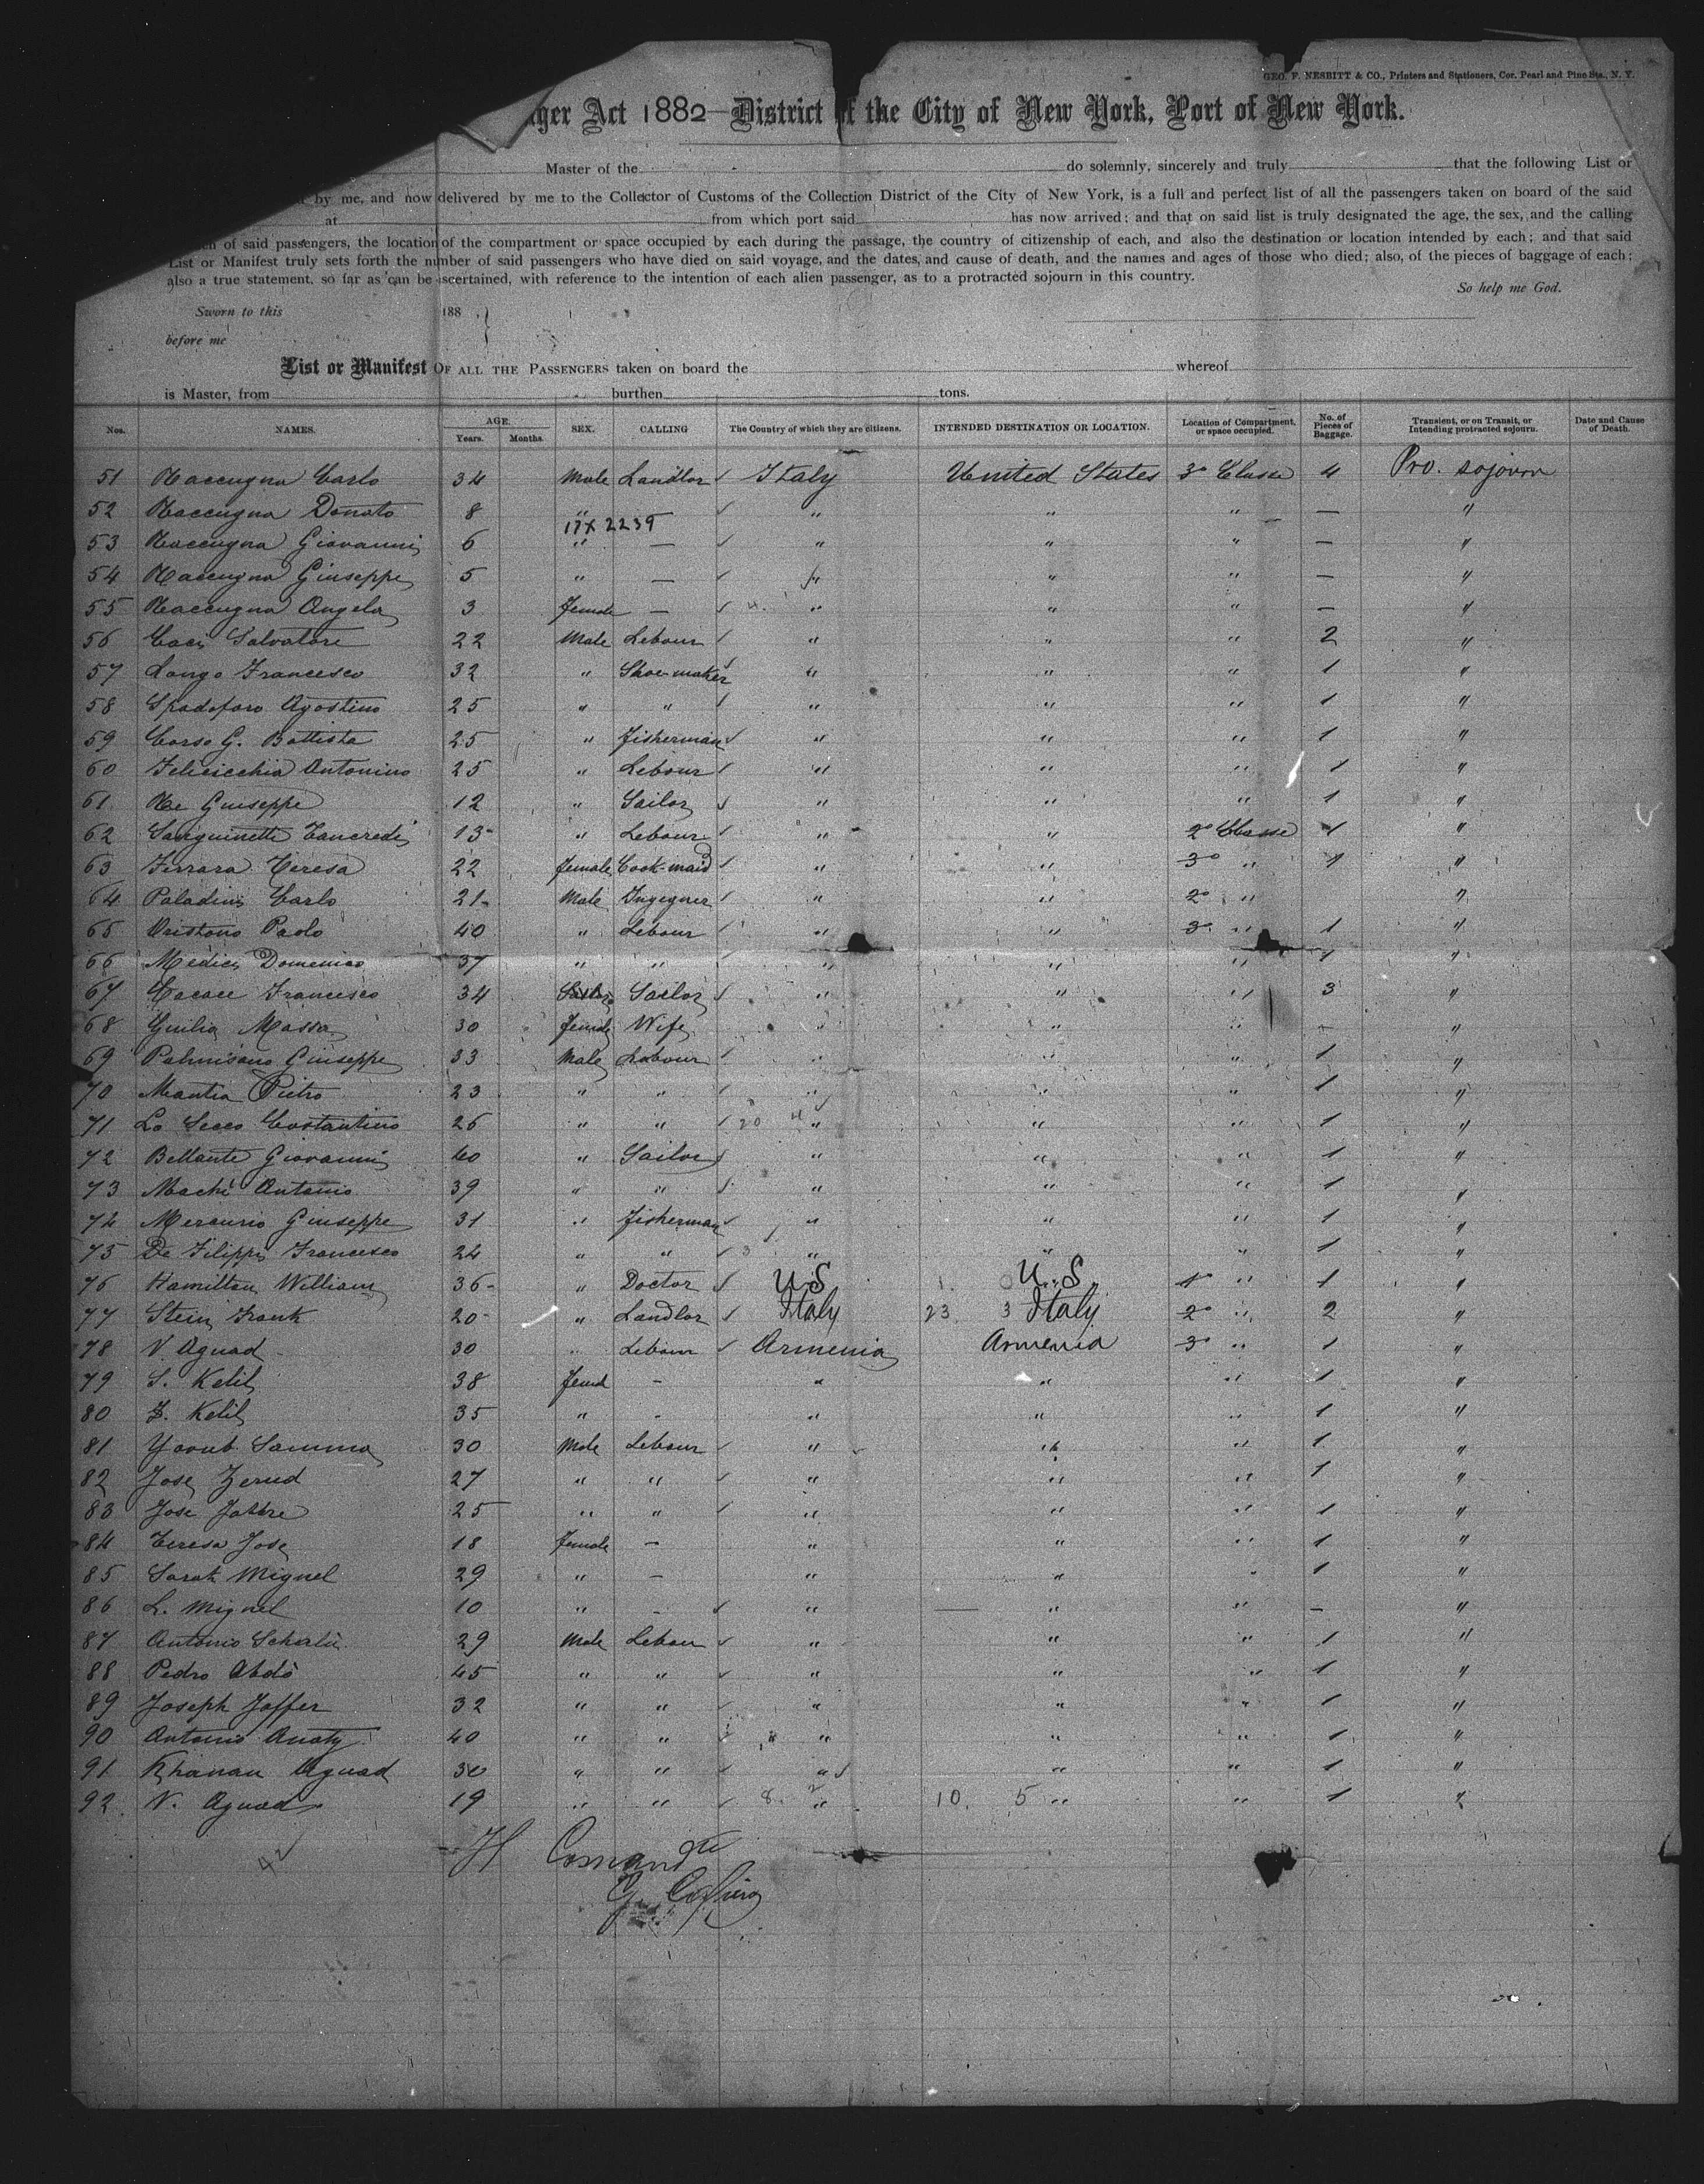 GEO. F. NESBITT & CO., Printers and Stationers, Cor. Pearl and Pine Sts., N. Y.
Act 1882 District of the City of New York, Port of New York.
Master of the do solemnly, sincerely and truly that the following List or
by me, and now delivered by me to the Collector of Customs of the Collection District of the City of New York, is a full and perfect list of all the passengers taken on board of the said
at from which port said has now arrived; and that on said list is truly designated the age, the sex, and the calling
of said passengers, the location of the compartment or space occupied by each during the passage, the country of citizenship of each, and also the destination or location intended by each; and that said
List or Manifest truly sets forth the number of said passengers who have died on said voyage, and the dates, and cause of death, and the names and ages of those who died; also, of the pieces of baggage of each;
also a true statement, so far as can be ascertained, with reference to the intention of each alien passenger, as to a protracted sojourn in this country.
So help me God.
Sworn to this 188
before me
List or Manifest OF ALL THE PASSENGERS taken on board the whereof
is Master, from burthen tons.
Nos. NAMES. AGE. Years. Months. SEX. CALLING The Country of which they are citizens. INTENDED DESTINATION OR LOCATION. Location of Compartment, or space occupied. No. of Pieces of Baggage. Transient, or on Transit, or Intending protracted sojourn. Date and Cause of Death.
51 Carlo 34 Male Landlor Italy United States 3° Classe 4 Pro. sojourn
52 Donato 8 " — " " " — "
17X2239
53 Giovanni 6 " — " " " — "
54 Giuseppe 5 " — " " " — "
55 Angela 3 female — " " " — "
56 Salvatore 22 Male Lebour " " " 2 "
57 Longo Francesco 32 " Shoe-maker " " " 1 "
58 Spadoforo Agostino 25 " " " " " 1 "
59 Corso G. Battista 25 " Fisherman " " " 1 "
60 Felicicchia Antonino 25 " Lebour " " " 1 "
61 Giuseppe 12 " Sailor " " " 1 "
62 Sanguinetti Tancredi 13 " Lebour " " 2° Classe 1 "
63 Ferrara Teresa 22 female Cook-maid " " 3° " 1 "
64 Paladini Carlo 21 Male Ingegner " " 2° " "
65 Paolo 40 " Lebour " " 3° " 1 "
66 Medici Domenico 37 " " " " " 1 "
67 Cacace Francesco 34 Sailor " " " 3 "
68 Giulia Massa 30 female Wife " " " – "
69 Palmisano Giuseppe 33 Male Labour " " " 1 "
70 Mantia Pietro 23 " " " " " 1 "
71 Lo Secco Costantino 26 " " " " " 1 "
72 Bellante Giovanni 40 " Sailor " " " 1 "
73 Machi Antonio 39 " " " " " 1 "
74 Mercurio Giuseppe 31 " Fisherman " " " 1 "
75 De Filippi Francesco 24 " " " " " 1 "
76 Hamilton William 36 " Doctor U.S U.S. 1° " 1 "
77 Stein Frank 20 " Landlor Italy 23 3 Italy 2° " 2 "
78 N. Aguad 30 " Lebour Armenia Armenia 3° " 1 "
79 S. Kelil 38 femal – " " " 1 "
80 Kelil 35 " - " " " 1 "
81 Samma 30 Male Lebour " " " 1 "
82 Jose 27 " " " " " 1 "
83 Jose 25 " " " " " 1 "
84 Teresa Jose 18 female — " " " 1 "
85 Sarah Miguel 29 " — " " " 1 "
86 L. Miguel 10 " - " " " – "
87 Antonio 29 Male Lebour " " " 1 "
88 Pedro Abdò 45 " " " " " 1 "
89 Joseph Joffer 32 " " " " " 1 "
90 Antonio 40 " " " " " 1 "
91 Aguad 30 " " " " " 1 "
92 N. Aguad 19 " " 8 " 10 5 " " 1 "
42